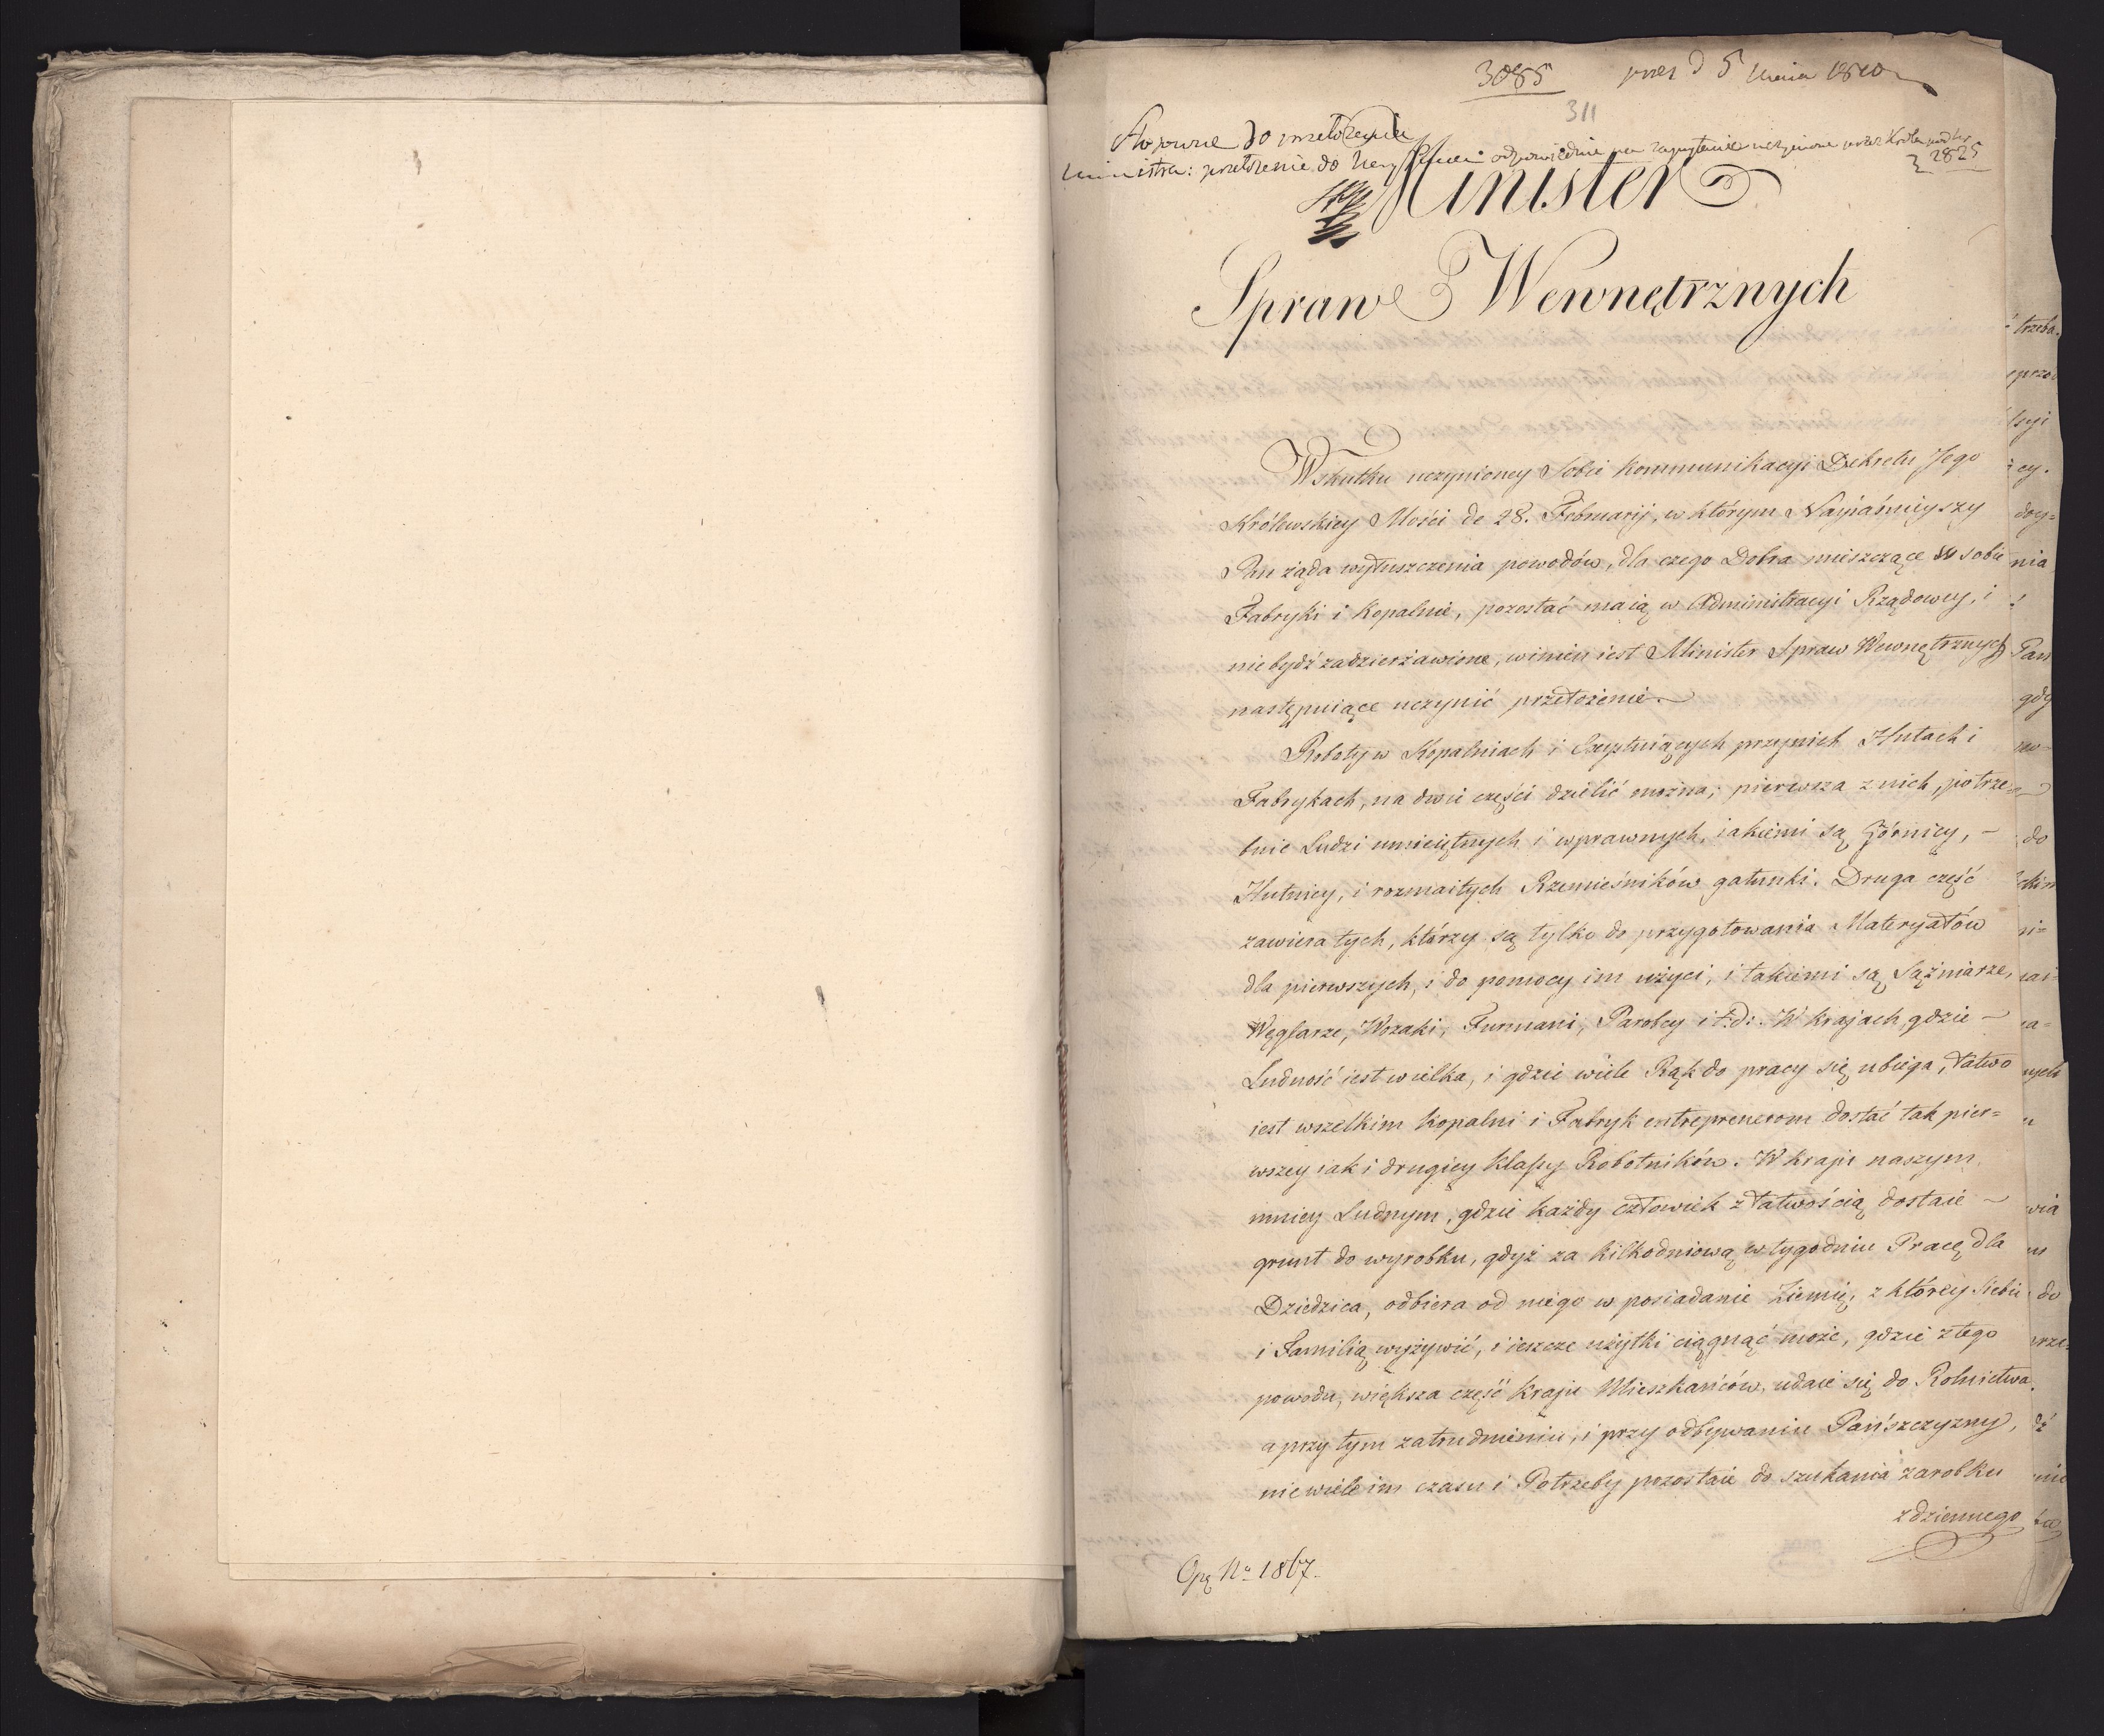 3085
311
Stosowne do przełożenia
Ministra: przełożenie do odpowiednie na zapytanie uczynione przez Króla pod
2825
Minister
Spraw Wewnętrznych
Wskutku uczynioney Sobie kommunikacyi Dekretu Jego
Królewskiey Mości de 28. Februarij, w którym Nayiaśnieyszy
Pan żąda wyłuszczenia powodów, dla czego Dobra mieszczące w sobie
Fabryki i Kopalnie, pozostać maią w Administracyi Rządowey, i
nie bydź zadzierżawione, winien iest Minister Spraw Wewnętrznych
następuiące uczynić przełożenie.
Roboty w Kopalniach i przynich Hutach i
Fabrykach, na dwie części dzielić można; pierwsza z nich, potrze=
buie Ludzi umieiętnych i wprawnych, iakiemi są Górnicy, –
Hutnicy, i rozmaitych Rzemieśników gatunki. Druga część
zawiera tych, którzy są tylko do przygotowania Materyałów
dla pierwszych, i do pomocy im użyci, i takiemi są Sążniarze,
Węglarze, Wozaki, Furmani, Parobcy i t:d: W krajach gdzie –
Ludność iest wielka, i gdzie wiele Rąk do pracy się ubiega, łatwo
iest wszelkim Kopalni i Fabryk entreprenerom dostać tak pier=
wszey iak i drugiey klassy Robotników. W kraju naszym
mniey Ludnym, gdzie każdy człowiek z łatwością dostaie –
grunt do wyrobku, gdyż za kilkodniową w tygodniu Pracę dla
Dziedzica, odbiera od niego w posiadanie Ziemię, z którey siebie
i Familią wyżywić, i ieszcze użytki ciągnąć może, gdzie z tego
powodu, większa część kraju Mieszkańców udaie się do Rolnictwa,
a przy tym zatrudnieniu, i przy odbywaniu Pańszczyzny,
nie wiele im czasu i Potrzeby pozostaie do szukania zarobku
z dziennego
No 1867.